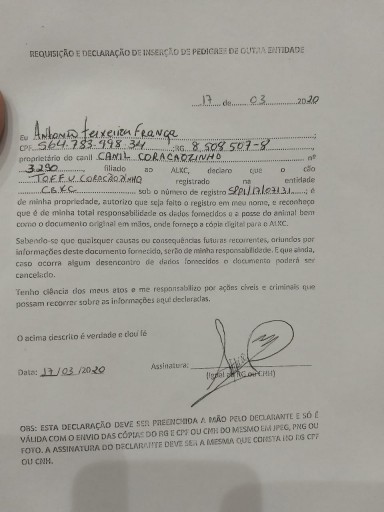 REQUISIÇÃO E DECLARAÇÃO DE INSERÇÃO DE PEDIGREE DE OUTRA ENTIDADE
17 de 03 2020
Eu Antonio Teixeira França
CPF 564.783.998.34 RG 8.508 507-8
proprietário do canil CANIL CORACAOZINHO nº
3.290 filiado ao ALKC, declaro que o cão
TOFFY CORAÇÃOZINHO registrado na entidade
CBKC sob o número de registro SPP/17/07131; é
de minha propriedade, autorizo que seja feito o registro em meu nome, e reconheço
que é de minha total responsabilidade os dados fornecidos e a posse do animal bem
como o documento original em mãos, onde forneço a cópia digital para a ALKC.
Sabendo-se que qualquer causas ou consequências futuras recorrentes, oriundos por
informações deste documento fornecida, serão de minha responsabilidade. E que ainda,
caso ocorra algum desencontro de dados fornecidos o documento poderá ser
cancelado.
Tenho ciência dos meus atos e me responsabilizo por ações civeis e criminais que
possam recorrer sobre as informações aqui declaradas.
O acima descrito é verdade e dou fé
Data: 17/03/2020 Assinatura:
(Igual ao RG ou CNH)
OBS: ESTA DECLARAÇÃO DEVE SER PREENCHIDA A MÃO PELO DECLARANTE E SÓ É
VÁLIDA COM O ENVIO DAS CÓPIAS DO RG E CPF OU CNH DO MESMO EM JPEG, PNG OU
FOTO. A ASSINATURA DO DECLARANTE DEVE SER A MESMA QUE CONSTA NO RG CPF
OU CNH.